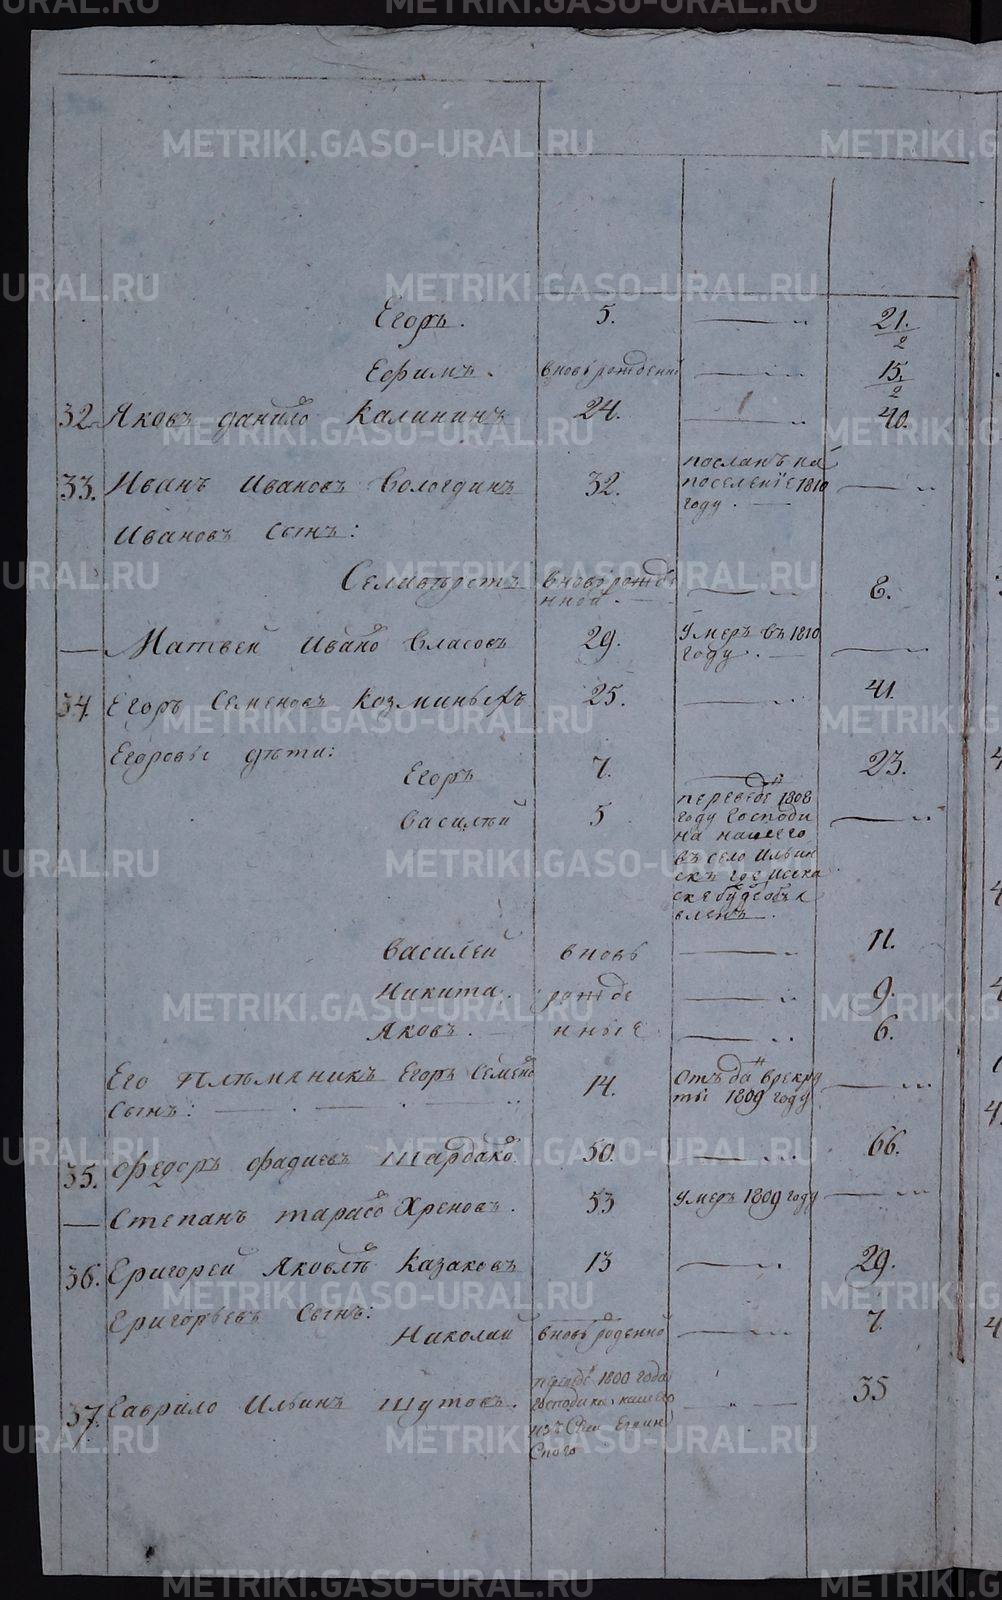 Егоръ. 5. 21. 2
Ефимъ. вновь рожденный 15. 2
32. Яковъ Данило Калининъ 24. 40.
33. Иванъ Ивановъ Вологдинъ 32. посланъ на поселение 1810 году.
Ивановъ Сынъ:
Селивѣрстъ вновь рожде нной 8.
Матвей Ивано Власовъ 29. Умеръ въ 1810 году.
34. Егоръ Семеновъ Козминыхъ 25. 41.
Егоровы дѣти:
Егоръ 7. 23.
Василѣй 5 переведе 1808
году Господи
на нашего
въ село Ильин
скъ где
вленъ.
Василей вновь 11.
Никита. рожде 9.
Яковъ. нные 6.
Его Племяникъ Егоръ Семено
Сынъ: 14. Отъда врекру
ты 1809 году
35. Федоръ Фадиевъ Шардако 50. 66.
Степанъ Тарасо Хреновъ. 53 умеръ 1809 году
36. Григорей Яковле Казаковъ 13 29.
Григорьевъ Сынъ:
Николай вновь роденно 7.
37. Гаврило Ильинъ Шутовъ. переведе 1800 года
Господина нашего
изъ Села
35
METRIKI.GASO-URAL.RU